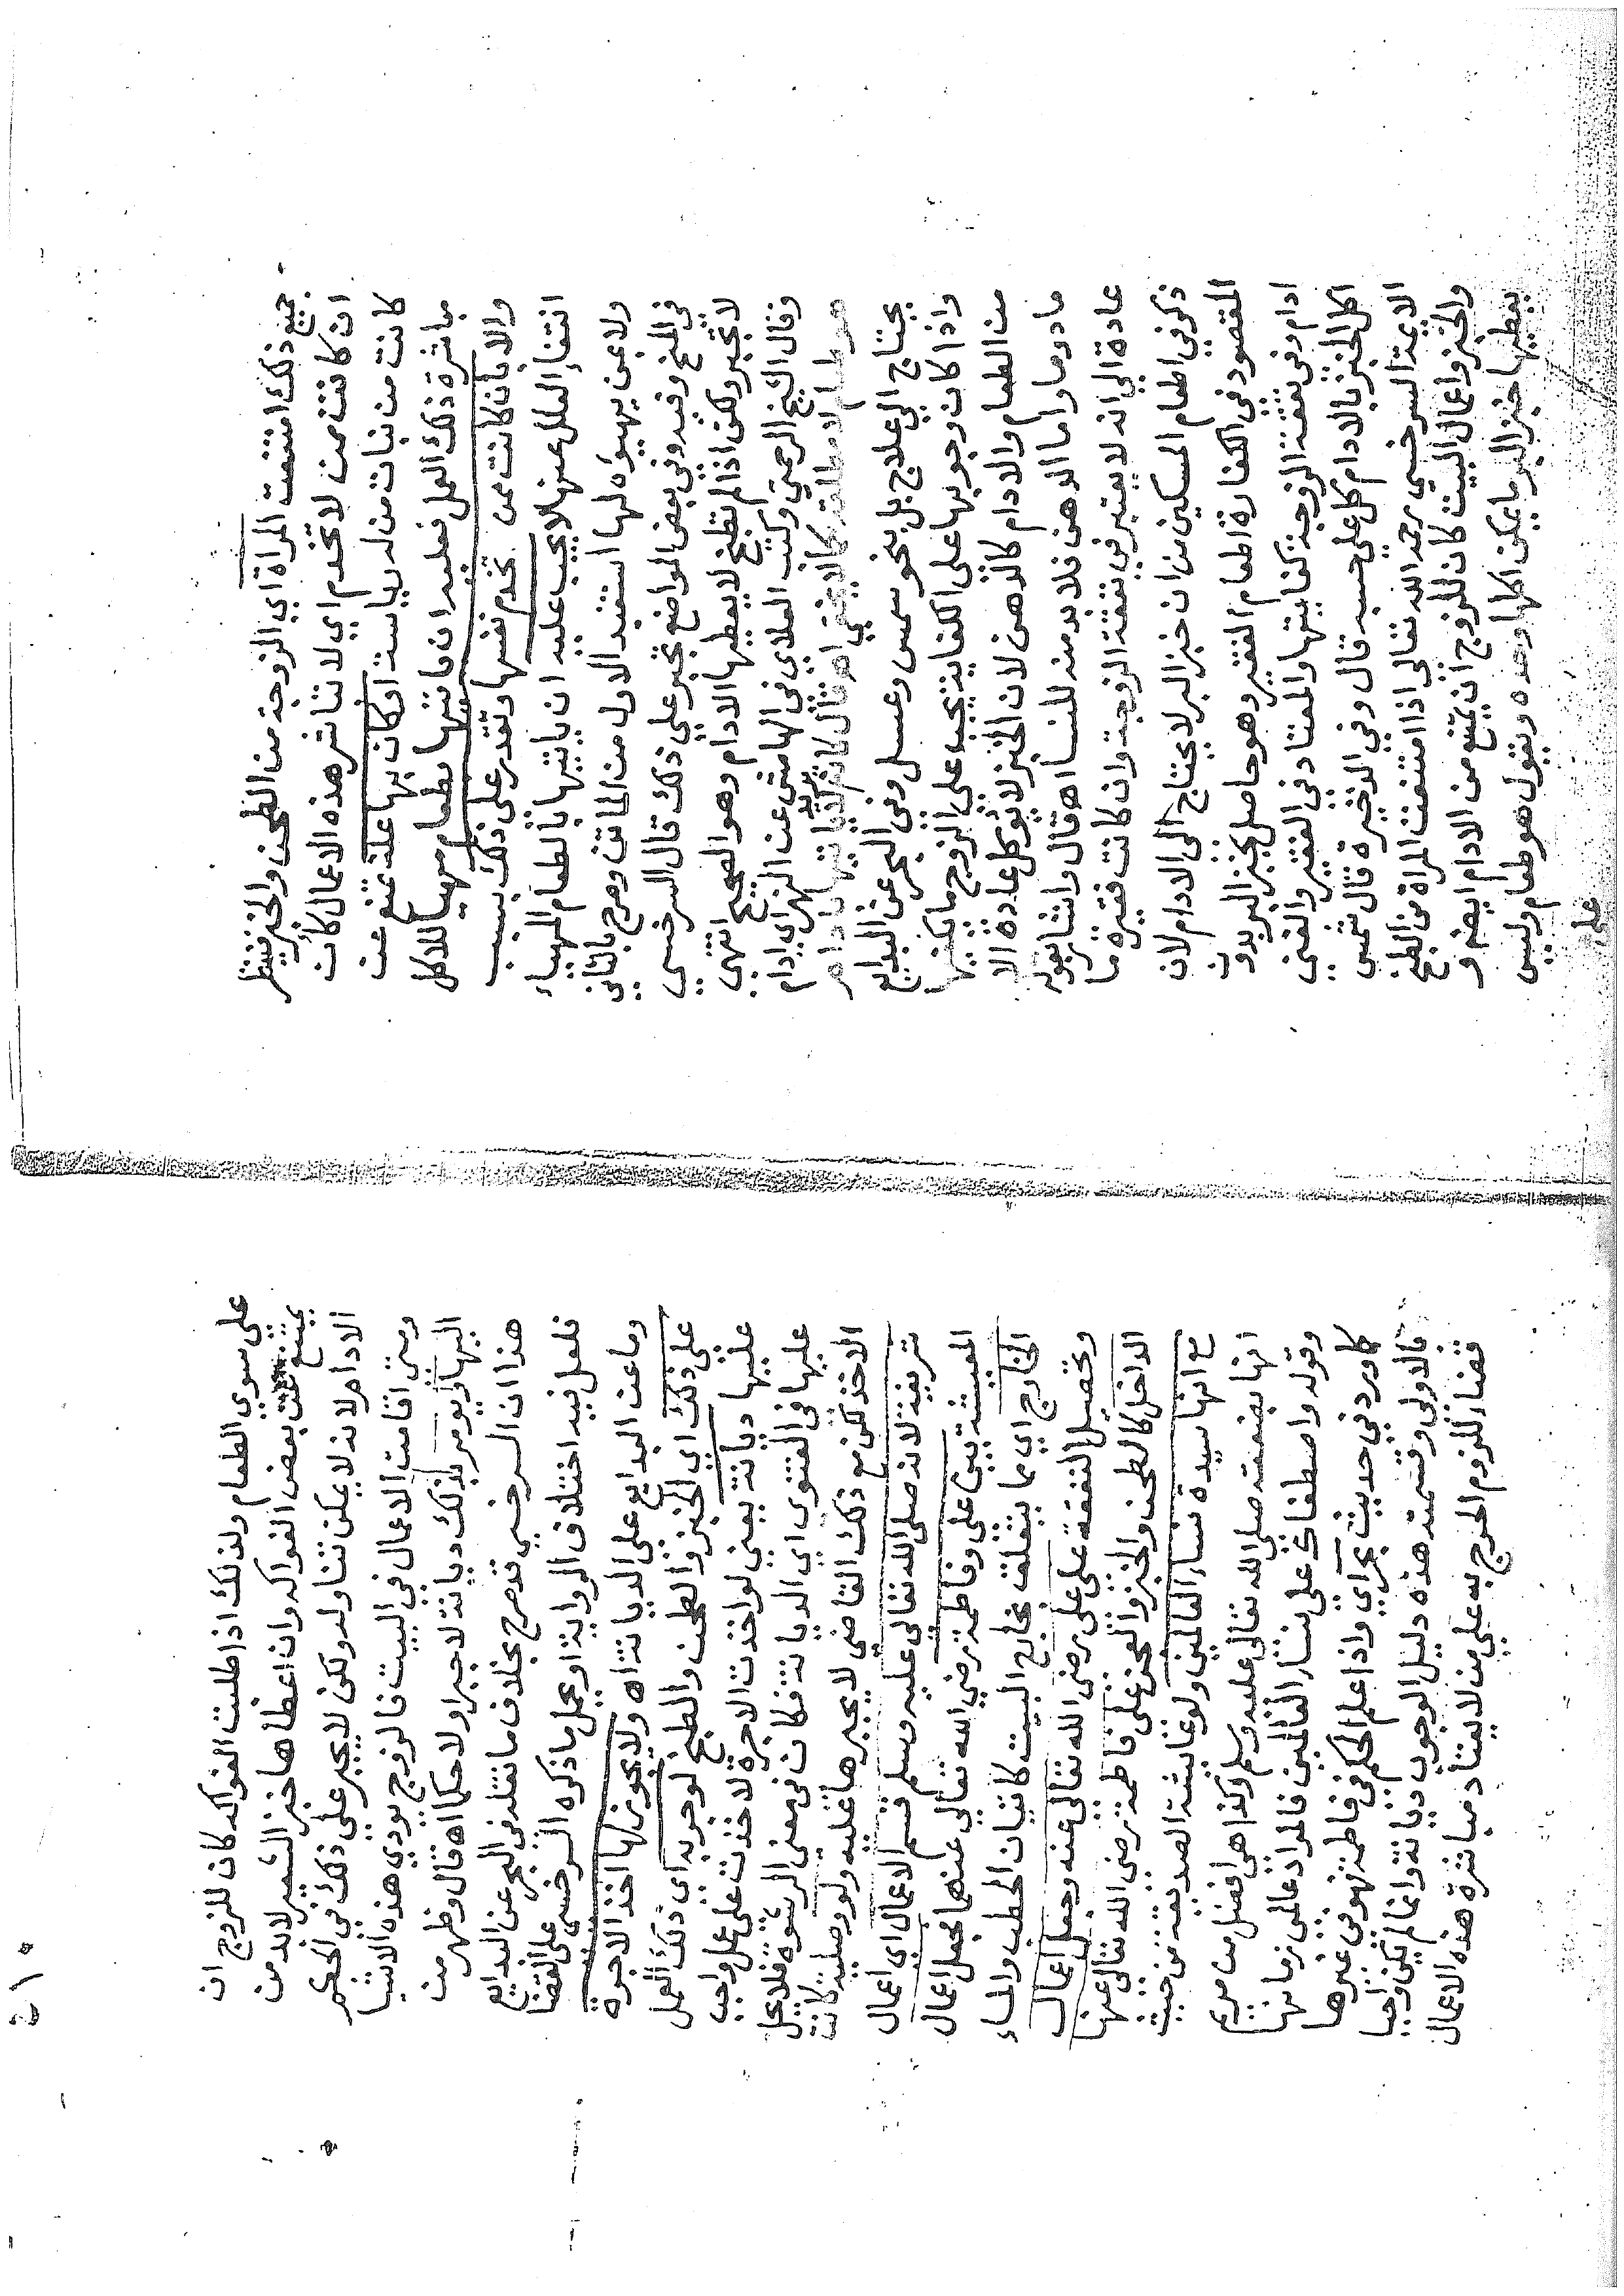 جميع ذلك امتنعت المراة اي الزوجة من الطحن والخبز ينظر
ان كانت ممن لا تخدم اي لا تباشر هذه الاعمال كأن
كانت من بنات من له رياسة اوكان بها علة تمنع عن
مباشرة ذلك العمل فعليه ان ياتيها بطعام مهيا للاكل
والا بان كانت ممن تخدم نفسها وتقدر على ذلك بسبب
انتفاء العلل عنها لا يجب عليه ان ياتيها بالطعام المهياء
ولا بمن يهيؤه لها استفيد الاول من الماتن وصرح بالثاني
في المنح وفيه وفي بعض المواضع تجبر على ذلك قال السرخسي
لا تجبر ولكن اذا لم تطبخ لا يعطيها الادام وهو الصحيح انتهى
وقال الشيخ الرحمتي وكتب العلاي في الهامش عن النهر اي ادام
هو طعام لا مطلقه كما لا يخفي اهـ قال كانه يريد لا ياتيها بادام
يحتاج الي علاج بل بنحو سمن وعسل وفي البحر عن البدايع
واذا كان وجوبها على الكفاية يجب على الزوج ما يكفيها
من الطعام والادام كالدهن لان الخبز لا يؤكل عادة الا
مادوما واما الدهن فلا بد منه للنسا اهـ قال واشار بقوله
عادة الي انه لا يعتبر في نفقة الزوجة وان كانت فقيرة ما
ذكر في اطعام المسكين من ان خبز البر لا يحتاج الى الادام لان
المقصود في الكفارة اطعام الفقير وهو حاصل بخبز البر بدون
ادام وفي نفقة الزوجة كفايتها والمعتاد في الفقير والغني
اكل الخبز بالادام كل على حسبه قال وفي الذخيرة قال شمس
الايمة السرخسي رحمه الله تعالى اذا امتنعت المراة من الطبخ
والخبز واعمال البيت كان للزوج ان يمتنع من الادام ايضا و
يعطيها خبز البر ما يمكن اكلها وحده ويقول هو طعام وليس
على
٥١٥
على سوي الطعام ولذلك اذا طلبت الفواكه كان للزوج ان
يمتنع عن بعض الفواكه وان اعطاها خبز الشعير لابد من
الادام لانه لا يمكن تناوله ولكن لا يجبر على ذلك في الحكم
ومتى اقامت الاعمال في البيت فالزوج يودي هذه الاشيا
اليها ويومر بذلك ديانة لا جبرا ولا حكما اهـ قال وظهر من
هذا ان السرخسي قد صرح بخلاف ما نقله في البحر عن البدايع
فلعل فيه اختلاف الرواية او يحمل ما ذكره السرخسي على القضا
وما عن البدايع على الديانة اهـ ولا يجوز لها اخذ الاجرة
على ذلك اي الخبز والطحن والطبخ لوجوبه اي ذلك العمل
عليها ديانة يعني لو اخذت الاجرة لاخذت على عمل واجب
عليها في الفتوى اي الديانة فكان في معنى الرشوة فلا يحل
الاخذ لكن مع ذلك القاضى لا يجبرها عليه ولو وصلية كانت
شريفة لانه صلى الله تعالى عليه وسلم قسم الاعمال اي اعمال
المعيشة بين على وفاطمة رضي الله تعالي عنهما فجعل اعمال
الخارج اي مما يتعلق بخارج البيت كاتيان الحطب والماء
وتحصيل النفقة على على رضي الله تعالى عنه وجعل اعمال
الداخل كالطحن والخبز والعجن على فاطمة رضي الله تعالى عنها
مع انها سيدة نساء العالمين ولو عايشة الصديقة من حيث
انها بضعته صلى الله تعالى عليه وسلم وكذا هي افضل من مريم
وقوله واصطفاك على نساء العالمين فالمراد عالمى زمانها
كما ورد في حديث بحر اي واذا علم الحكم في فاطمة فهو في غيرها
فالاولى وقسمته هذه دليل الوجوب ديانة وانما لم يكن واجبا
قضاء للزوم الحرج به على من لا يعتاد مباشرة هذه الاعمال